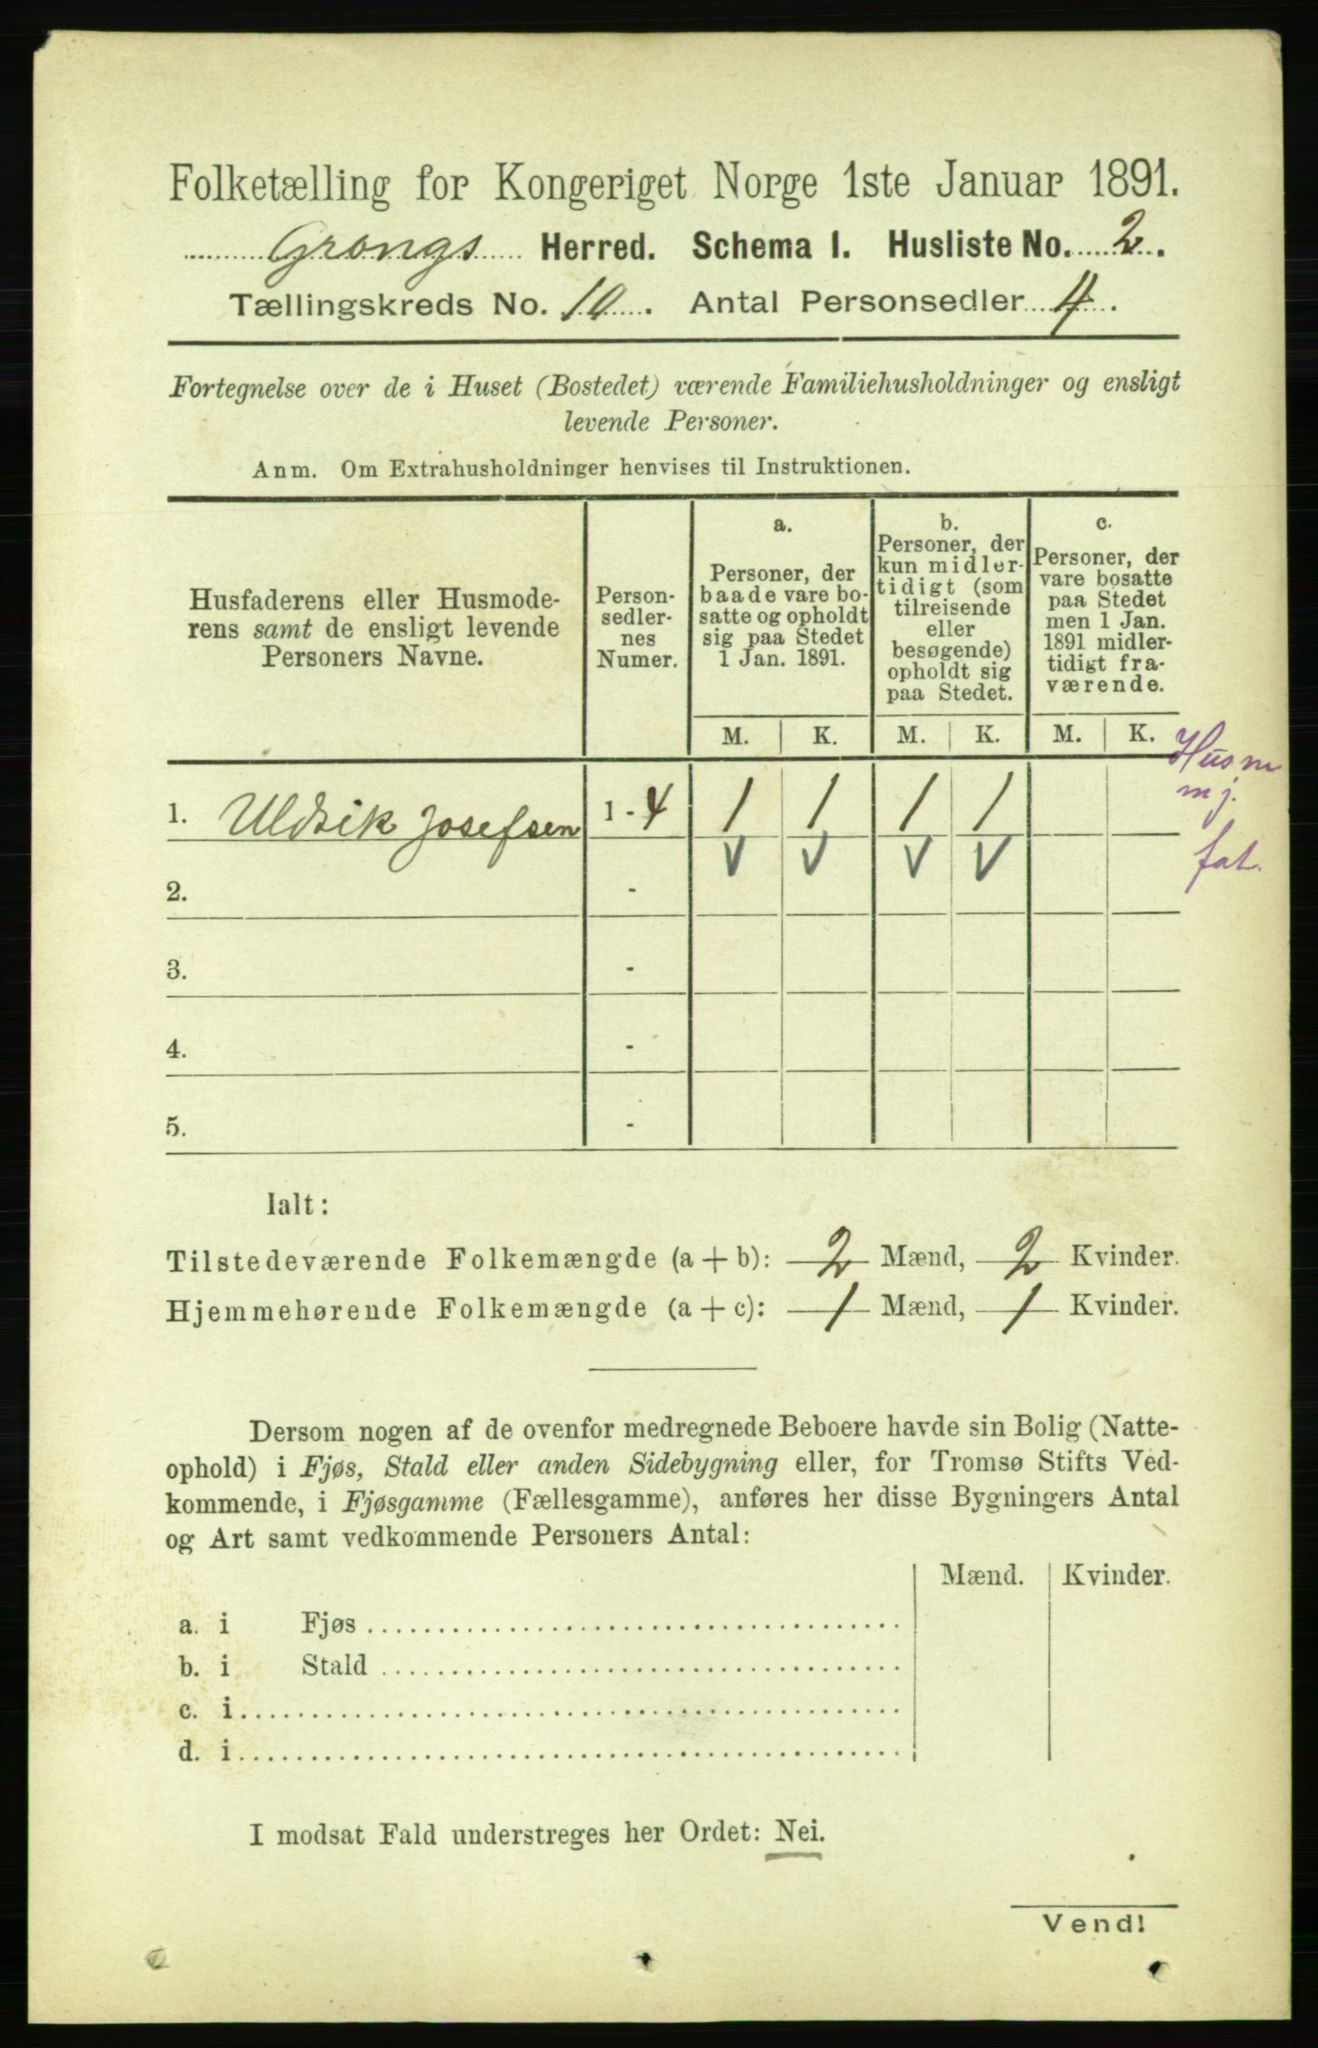 Folketælling for Kongeriget Norge 1ste Januar 1891.
Grongs Herred. Schema I. Husliste No. 2.
Tællingskreds No. 10. Antal Personsedler 4.
Fortegnelse over de i Huset (Bostedet) værende Familiehusholdninger og ensligt
levende Personer.
Anm. Om Extrahusholdninger henvises til Instruktionen.
Husfaderens eller Husmode-
rens samt de ensligt levende
Personers Navne.
Person-
sedler-
nes
Numer.
a.
Personer, der
baade vare bo-
satte og opholdt
sig paa Stedet
1 Jan. 1891.
b.
Personer, der
kun midler-
tidigt (som
tilreisende
eller
besøgende)
opholdt sig
paa Stedet.
c.
Personer, der
vare bosatte
paa Stedet
men 1 Jan.
1891 midler-
tidigt fra-
værende.
M. K. M. K. M. K.
Husm
mj.
fat.
1. Uldrik Josefsen 1 - 4 1 1 1 1
V V V V
2. -
3. -
4. -
5. -
Ialt:
Tilstedeværende Folkemængde (a + b): 2 Mænd, 2 Kvinder.
Hjemmehørende Folkemængde (a + c): 1 Mænd, 1 Kvinder.
Dersom nogen af de ovenfor medregnede Beboere havde sin Bolig (Natte-
ophold) i Fjøs, Stald eller anden Sidebygning eller, for Tromsø Stifts Ved-
kommende, i Fjøsgamme (Fællesgamme), anføres her disse Bygningers Antal
og Art samt vedkommende Personers Antal:
Mænd. Kvinder.
a. i Fjøs
b. i Stald
c. i
d. i
I modsat Fald understreges her Ordet: Nei.
Vend!